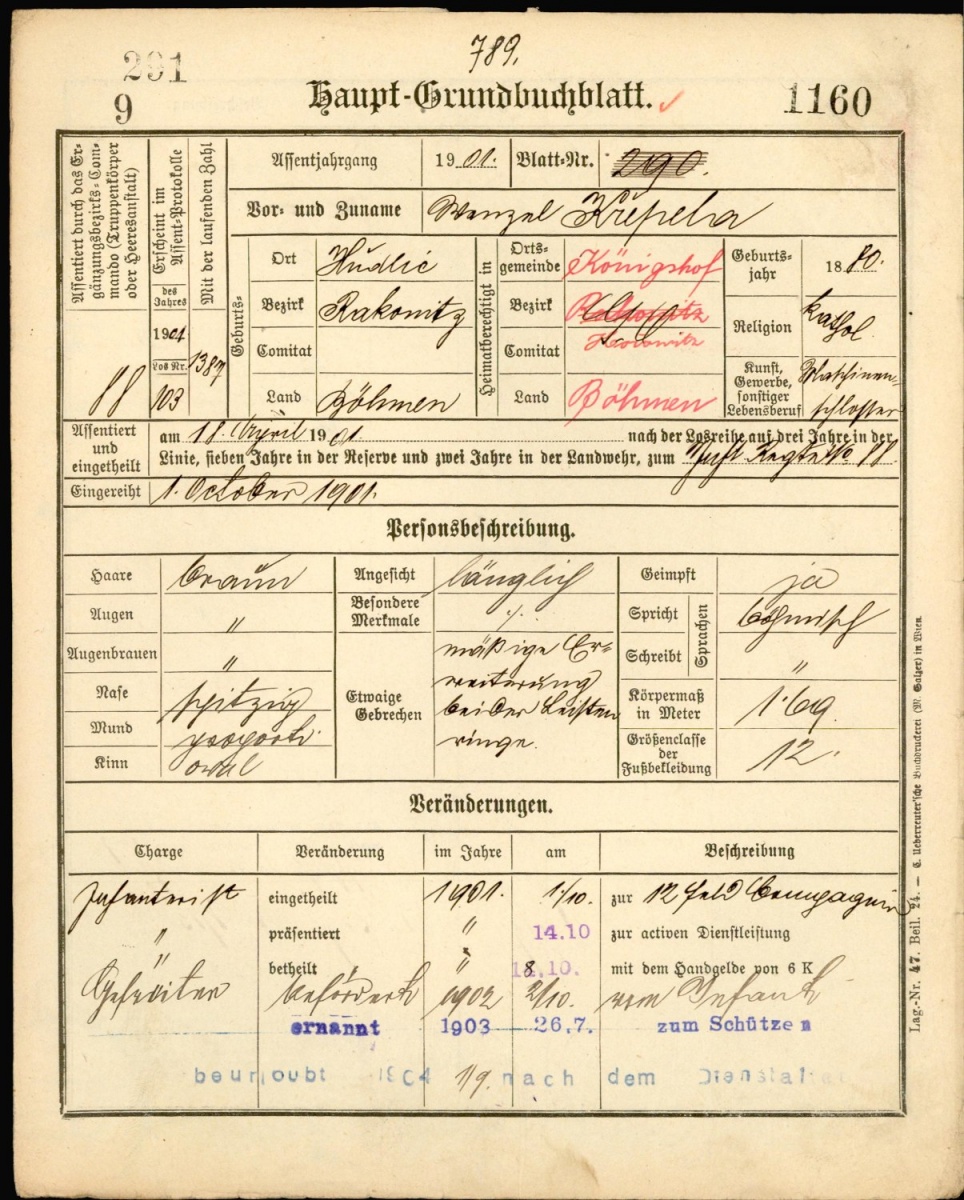 789.
291
9
Haupt-Grundbuchblatt.
1160
Assentiert durch das Er-
gänzungsbezirks-Com-
mando (Truppenkörper
oder Heeresanstalt)
88
Erscheint im
Assent-Protokolle
des
Jahres
1901
Los Nr.
103
Mit der laufenden Zahl
1387
Assentjahrgang 1901. Blatt-Nr. 290.
Vor- und Zuname Wenzel Křepela
Geburts-
Ort Hudlic
Bezirk Rakonitz
Comitat
Land Böhmen
Heimatberechtigt in
Orts-
gemeinde Königshof
Bezirk
Comitat Horowitz
Land Böhmen
Geburts-
jahr 1880.
Religion kathol.
Kunst,
Gewerbe,
sonstiger
Lebensberuf
Maschinen-
schlosser
Assentiert
und
eingetheilt
am 18. April 1901 nach der Losreihe auf drei Jahre in der
Linie, sieben Jahre in der Reserve und zwei Jahre in der Landwehr, zum Inft Regte No 88.
Eingereiht 1. October 1901.
Personsbeschreibung.
Haare braun
Augen "
Augenbrauen "
Nase spitzig
Mund proport.
Kinn oval
Angesicht länglich
Besondere
Merkmale ·/.
Etwaige
Gebrechen
mäßige Er-
weiterung
beider Leisten
ringe.
Geimpft ja
Spricht
Schreibt
Sprachen
böhmisch
"
Körpermaß
in Meter 1·69.
Größenclasse
der
Fußbekleidung 12.
Veränderungen.
Charge Veränderung im Jahre am Beschreibung
Infanterist eingetheilt 1901. 1/10. zur 12 Feld Compagnie
" präsentiert " 14.10 zur activen Dienstleistung
" betheilt " 18.10. mit dem Handgelde von 6 K
Gefreiter befördert 1902 2/10. vom Infant
ernannt 1903 26.7. zum Schützen
beurloubt 1904 1/9. nach dem
Lag.-Nr. 47. Beil. 24. — C. Ueberreuter'sche Buchdruckerei (M. Salzer) in Wien.